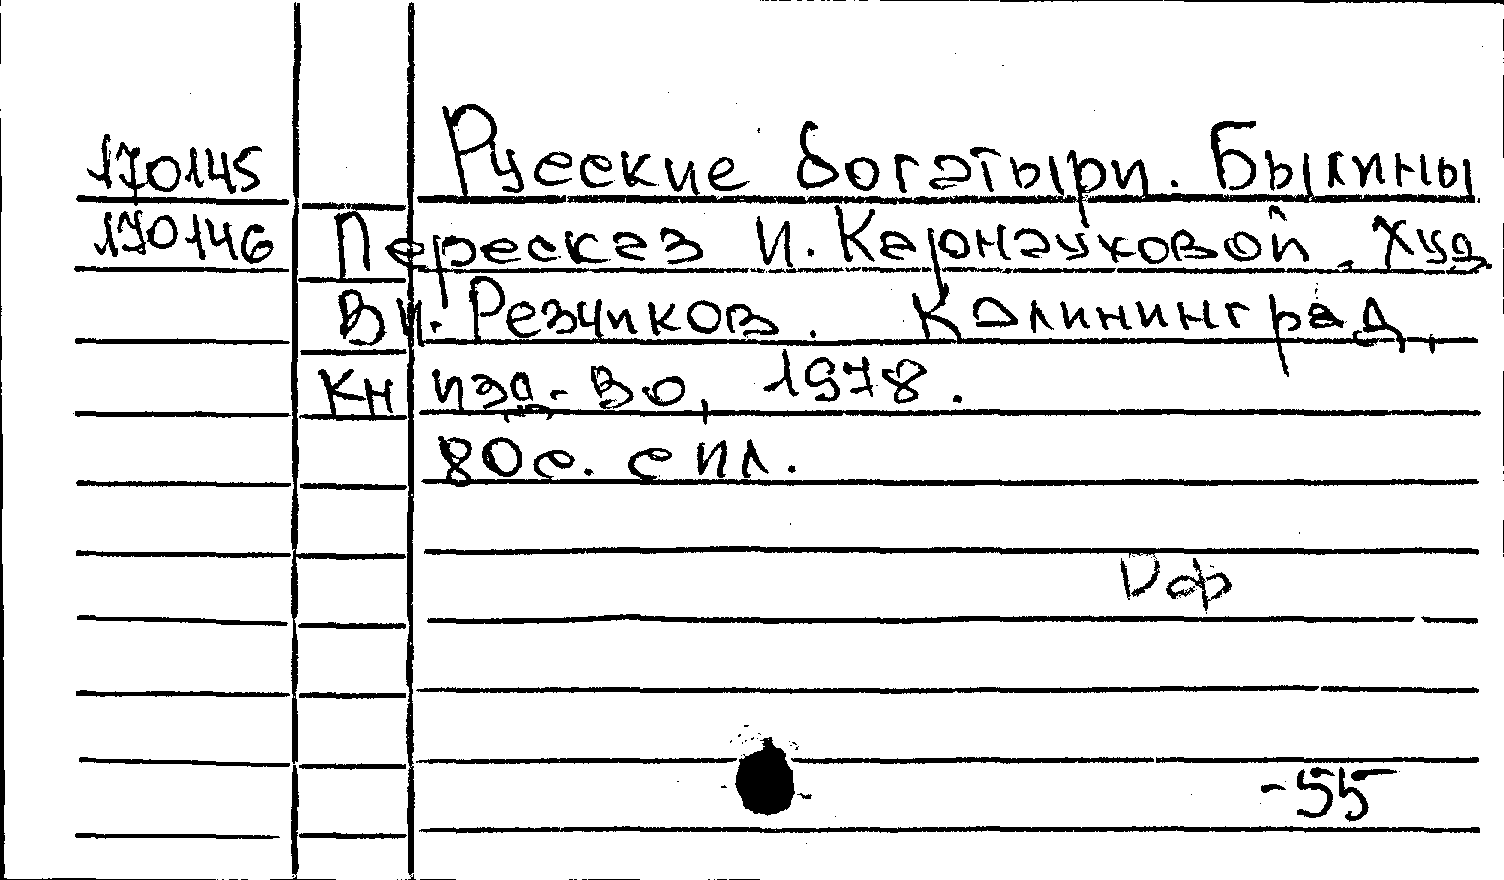 170145 Русские богатыри. Былины
170146 Пересказ И. Карнауковой. Худ
Вл. Резчиков. Калининград,
Кн изд-во, 1978.
80с. с ил.
-55